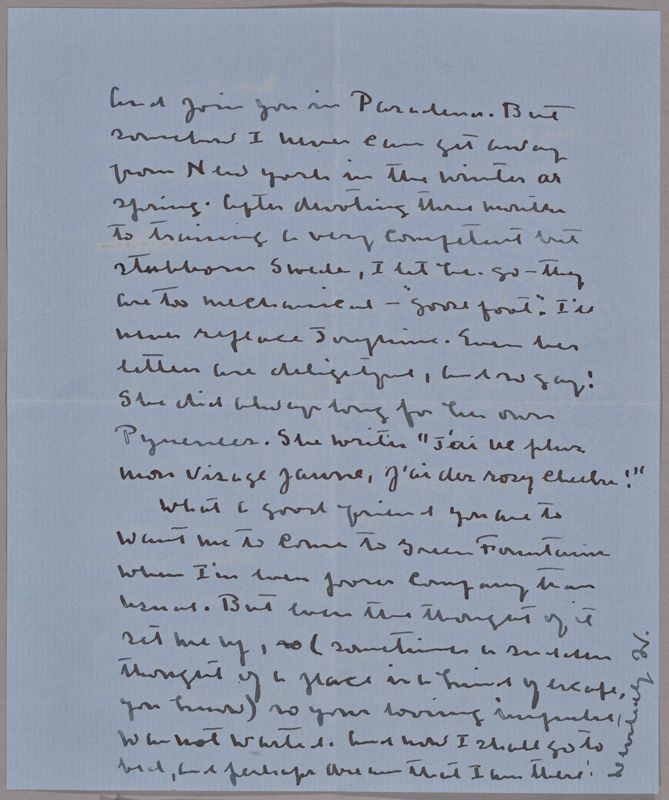 and join you in Pasadena. But
somehow I never can get away
from New York in the winter or
spring. After devoting three months
to training a very competent but
stubborn Swede, I let her go - they
are too mechanical - "goose foot". I'll
never replace Josephine. Even her
letters are delightful, and so gay!
She did always long for her own
Pyrenees. She writes "J'ai ne plus
mon visage jaune, j'ai des rosy cheeks!"
What a good friend you are to
want me to come to Green Fountains
when I'm even poorer company than
usual. But even the thought of it
set me up, so (sometimes a sudden
thought of a place is a kind of escape,
you know) so your loving impulse,
was not wasted. And now I shall go to
bed, and perhaps dream that I am there!